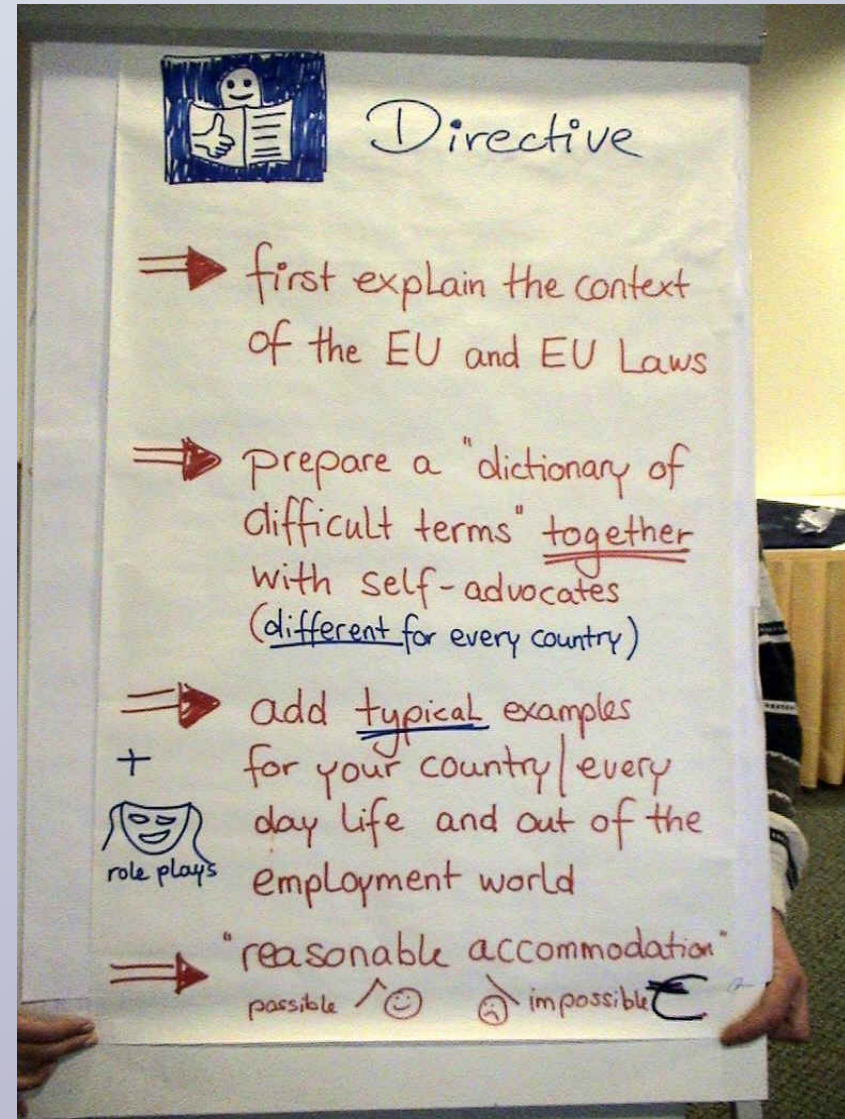 Directive
first explain the context
of the EU and EU Laws
prepare a "dictionary of
difficult terms" together
with self-advocates
(different for every country)
add typical examples
+ for your country/every
day life and out of the
role plays
employment world
"reasonable accommodation"
possible impossible €